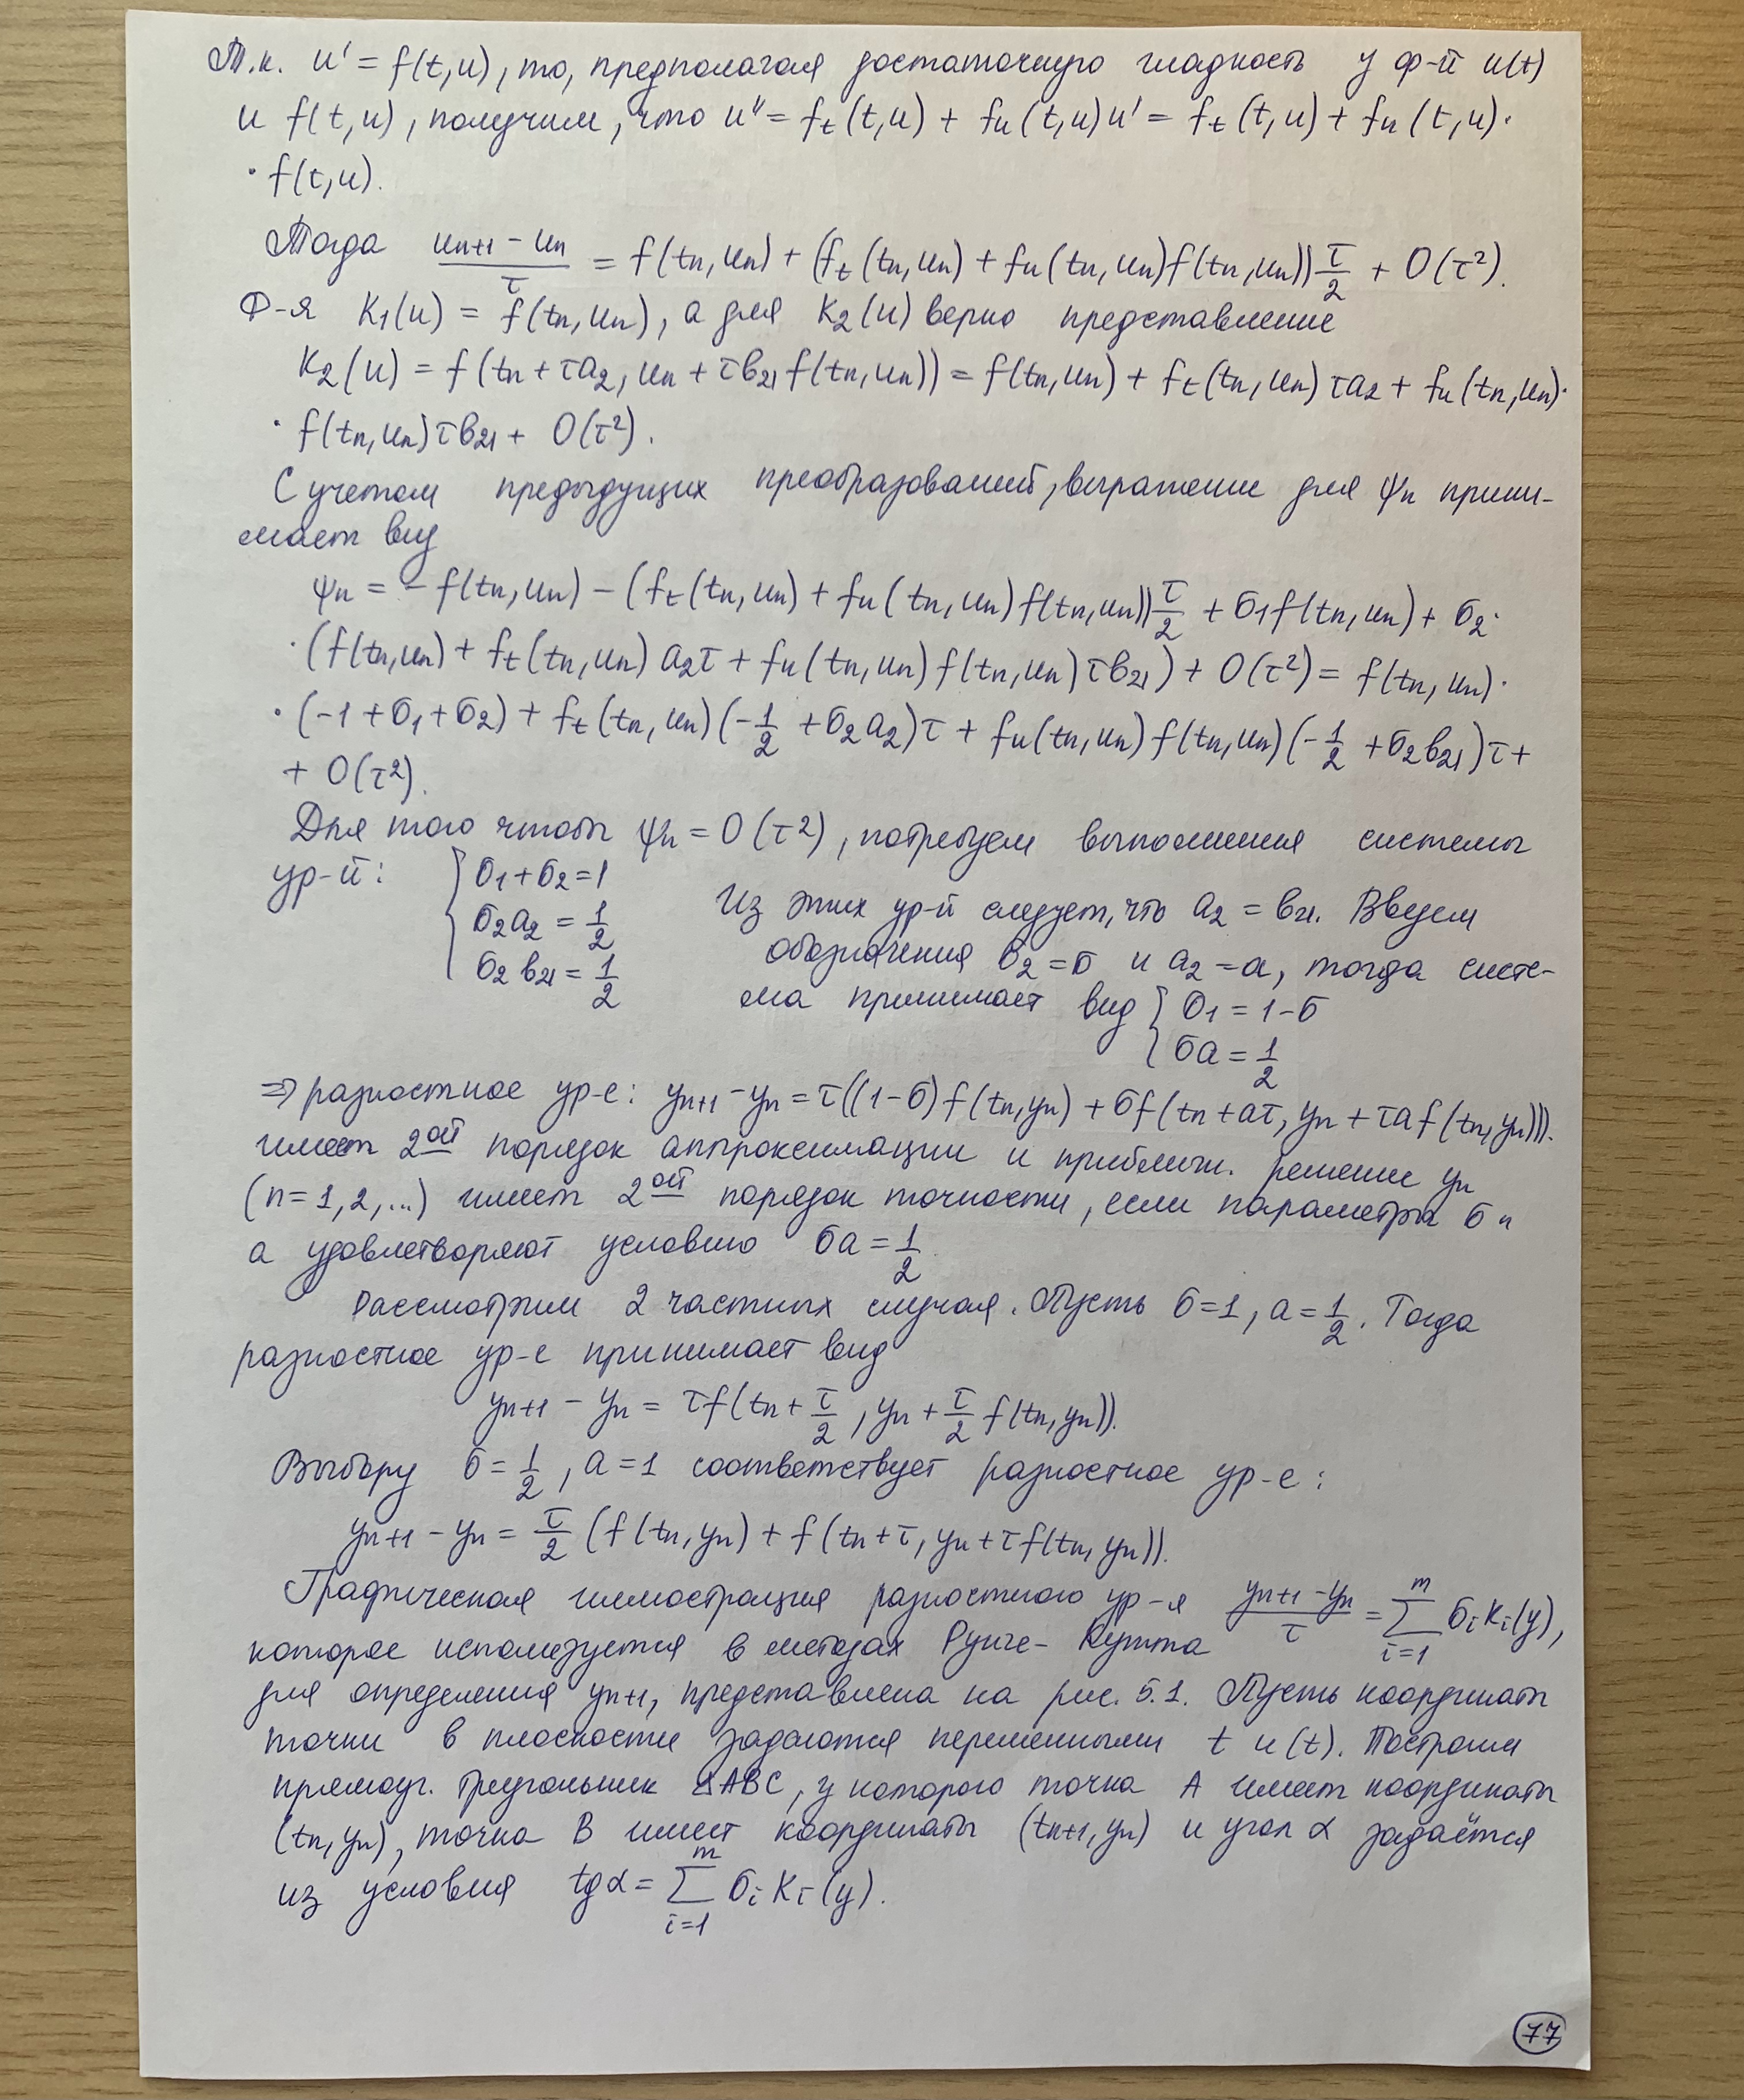 Т.к. u' = f(t,u), то, предполагая достаточную гладкость у ф-й u(t)
и f(t,u), получим, что u'' = f_t(t,u) + f_u(t,u)u' = f_t(t,u) + f_u(t,u)·
· f(t,u).
Тогда (u_{n+1} - u_n)/τ = f(t_n,u_n) + (f_t(t_n,u_n) + f_u(t_n,u_n)f(t_n,u_n)) τ/2 + O(τ²).
Ф-я K_1(u) = f(t_n,u_n), а для K_2(u) верно представление
K_2(u) = f(t_n + τa_2, u_n + τb_{21}f(t_n,u_n)) = f(t_n,u_n) + f_t(t_n,u_n)τa_2 + f_u(t_n,u_n)·
· f(t_n,u_n)τb_{21} + O(τ²).
С учетом предыдущих преобразований, выражение для ψ_n прини-
мает вид
ψ_n = - f(t_n,u_n) - (f_t(t_n,u_n) + f_u(t_n,u_n)f(t_n,u_n)) τ/2 + σ_1f(t_n,u_n) + σ_2·
·(f(t_n,u_n) + f_t(t_n,u_n)a_2τ + f_u(t_n,u_n)f(t_n,u_n)τb_{21}) + O(τ²) = f(t_n,u_n)·
· (-1 + σ_1 + σ_2) + f_t(t_n,u_n)(-1/2 + σ_2a_2)τ + f_u(t_n,u_n)f(t_n,u_n)(-1/2 + σ_2b_{21})τ +
+ O(τ²).
Для того чтобы ψ_n = O(τ²), потребуем выполнения системы
ур-й: { σ_1 + σ_2 = 1
σ_2a_2 = 1/2
σ_2b_{21} = 1/2
Из этих ур-й следует, что a_2 = b_{21}. Введем
обозначения σ_2 = σ и a_2 = a, тогда систе-
ма принимает вид { σ_1 = 1 - σ
σa = 1/2
⇒ разностное ур-е: y_{n+1} - y_n = τ((1-σ)f(t_n,y_n) + σf(t_n + aτ, y_n + τaf(t_n,y_n))).
имеет 2ой порядок аппроксимации и приближ. решение y_n
(n = 1,2,...) имеет 2ой порядок точности, если параметры σ и
a удовлетворяют условию σa = 1/2.
Рассмотрим 2 частных случая. Пусть σ = 1, a = 1/2. Тогда
разностное ур-е принимает вид
y_{n+1} - y_n = τf(t_n + τ/2, y_n + τ/2 f(t_n,y_n)).
Выбору σ = 1/2, a = 1 соответствует разностное ур-е:
y_{n+1} - y_n = τ/2 (f(t_n,y_n) + f(t_n + τ, y_n + τf(t_n,y_n)).
Графическая иллюстрация разностного ур-я (y_{n+1} - y_n)/τ = ∑_{i=1}^{m} σ_iK_i(y),
которое используется в методах Рунге-Кутта
для определения y_{n+1}, представлена на рис. 5.1. Пусть координаты
точки в плоскости задаются переменными t и (t). Построим
прямоуг. треугольник ΔABC, у которого точка A имеет координаты
(t_n,y_n), точка B имеет координаты (t_{n+1},y_n) и угол α задаётся
из условия tgα = ∑_{i=1}^{m} σ_iK_i(y).
77